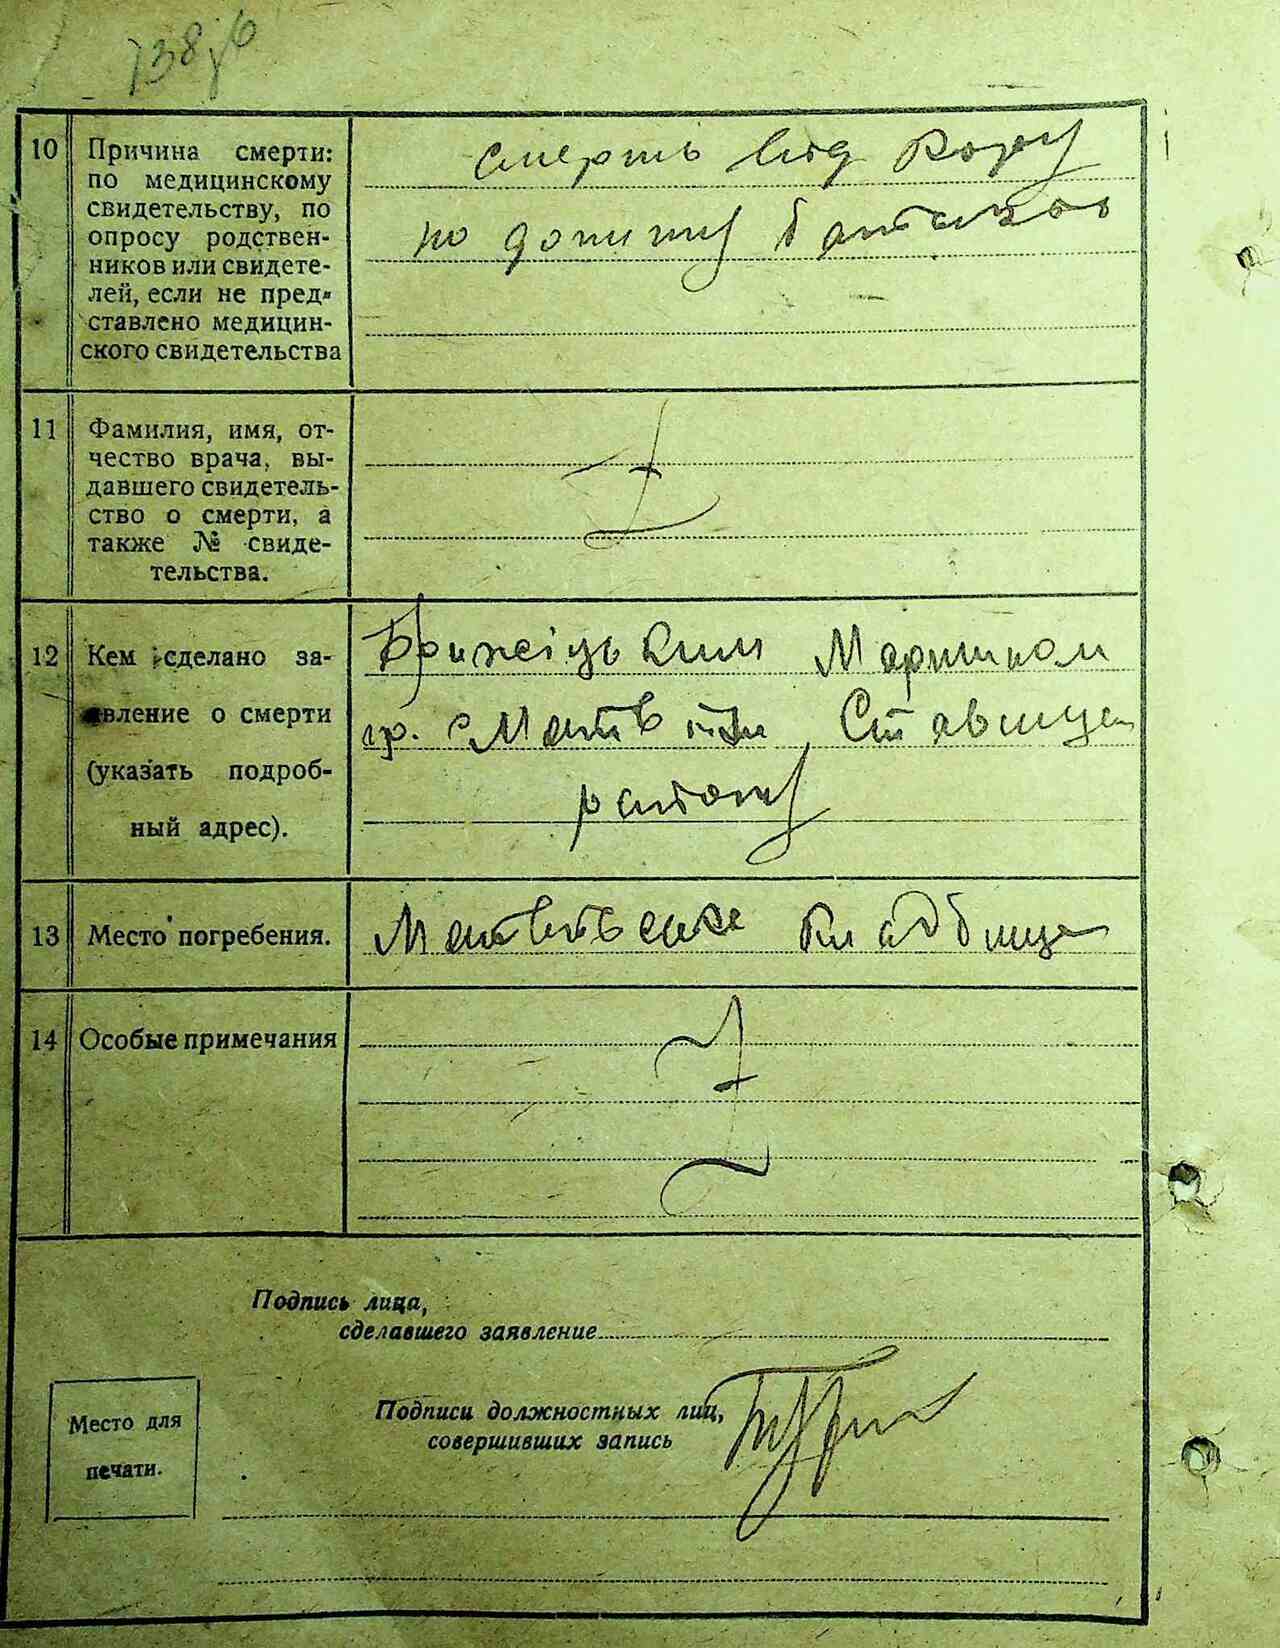 10 Причина смерти:
по медицинскому
свидетельству, по
опросу родствен-
ников или свидете-
лей, если не пред-
ставлено медицин-
ского свидетельства
смерть від кору
по допиту батьков
11 Фамилия, имя, от-
чество врача, вы-
давшего свидетель-
ство о смерти, а
также № свиде-
тельства.
12 Кем сделано за-
явление о смерти
(указать подроб-
ный адрес).
Мартином
Ставище
району
13 Место погребения.
кладбище
14 Особые примечания
Подпись лица,
сделавшего заявление
Подписи должностных лиц,
совершивших запись
Место для
печати.